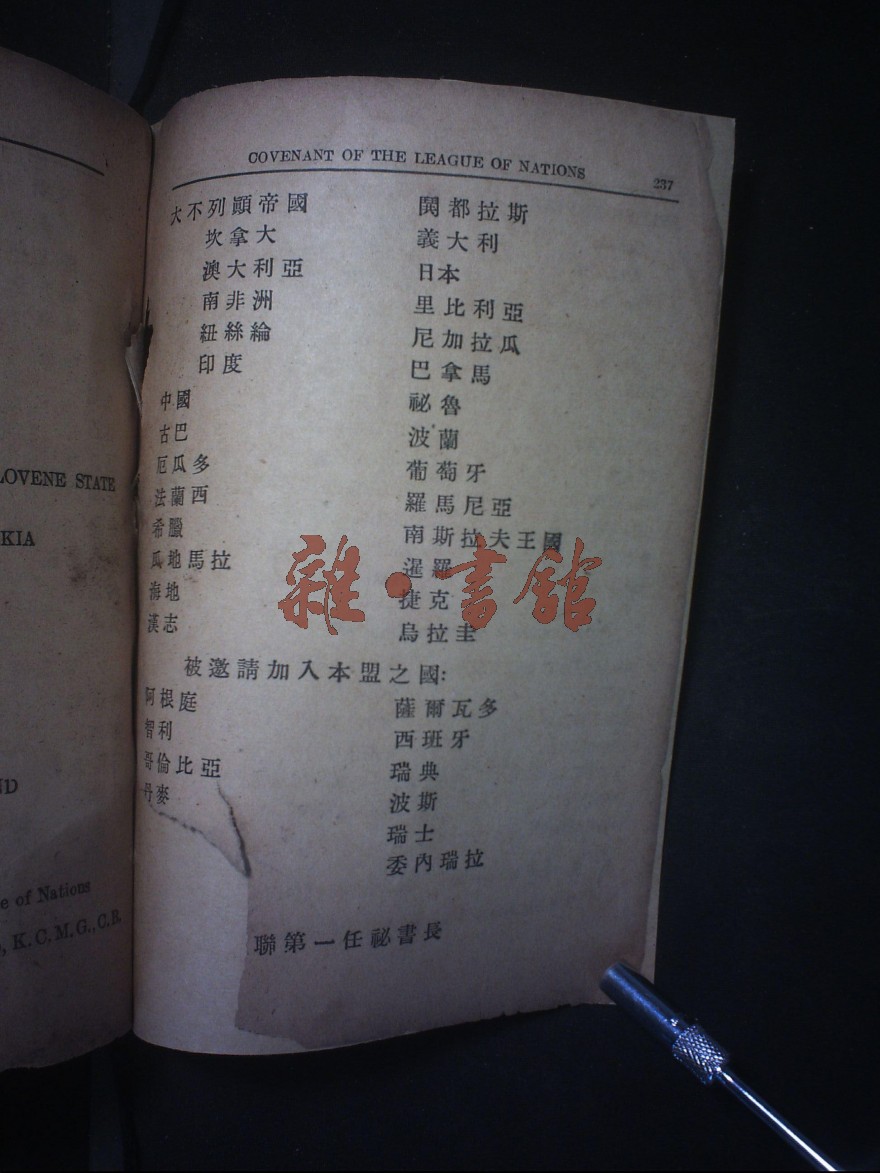 COVENANT OF THE LEAGUE OF NATIONS 237
大不列顚帝國
坎拿大
澳大利亞
南非洲
紐絲綸
印度
中國
古巴
厄瓜多
法蘭西
希臘
瓜地馬拉
海地
漢志
閧都拉斯
義大利
日本
里比利亞
尼加拉瓜
巴拿馬
祕魯
波蘭
葡萄牙
羅馬尼亞
南斯拉夫王國
暹羅
捷克
烏拉圭
被邀請加入本盟之國:
阿根庭
智利
哥倫比亞
丹麥
薩爾瓦多
西班牙
瑞典
波斯
瑞士
委內瑞拉
聯第一任祕書長
LOVENE STATE
KIA
ND
e of Nations
K.C.M.G.,C.B.
雜·書館